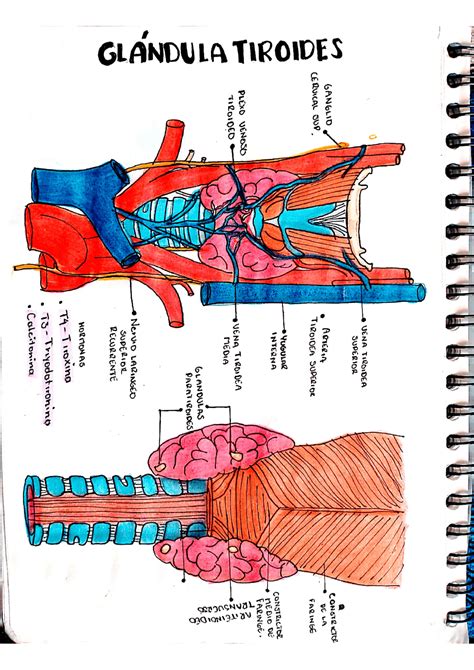 GLÁNDULA TIROIDES
GANGLIO
CERVICAL SUP.
PLEXO VENOSO
TIROIDEO
VENA TIROIDEA
SUPERIOR
ARTERIA
TIROIDEA SUPERIOR
YUGULAR
INTERNA
VENA TIROIDEA
MEDIA
NERVIO LARINGEO
SUPERIOR
RECURRENTE
HORMONAS
• T4 - Tiroxina
• T3 - Triyodotironina
• Calcitonina
GLANDULAS
PARATIROIDES
CONSTRICTOR
DE LA
FARINGE
CONSTRICTOR
MEDIO DE
FARINGE.
TRANSVERSO